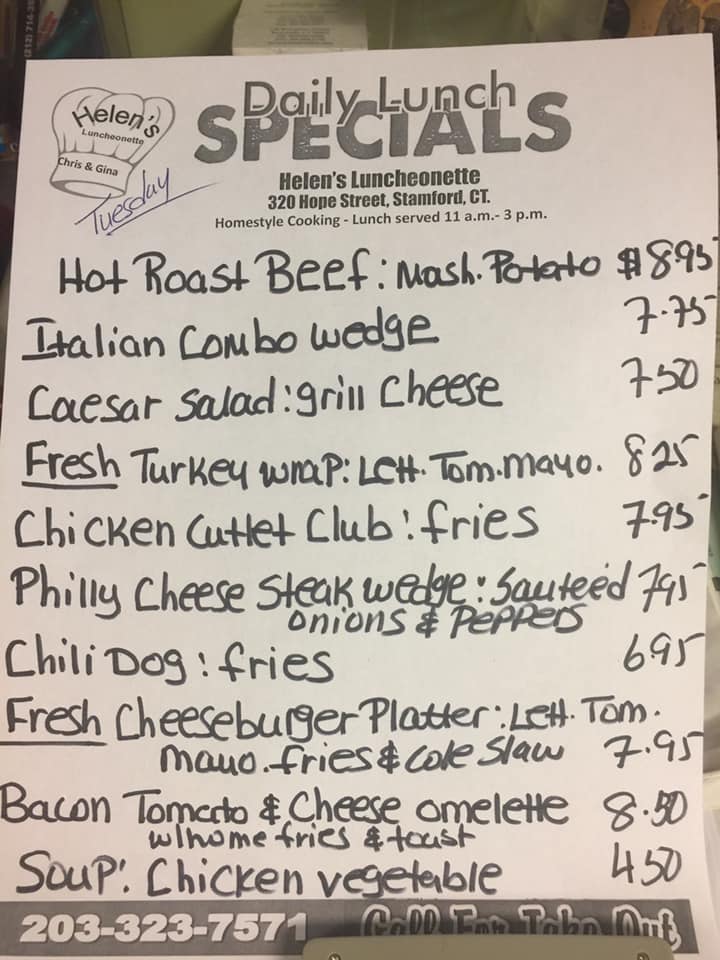 (212) 714-35
Helen's
Luncheonette
Chris & Gina
Tuesday
Daily Lunch
SPECIALS
Helen's Luncheonette
320 Hope Street, Stamford, CT.
Homestyle Cooking - Lunch served 11 a.m.- 3 p.m.
Hot Roast Beef: Mash. Potato $8.95
Italian Combo Wedge 7.75
Caesar Salad: grill Cheese 7.50
Fresh Turkey wrap: Lett. Tom. mayo. 8.25
Chicken Cutlet Club: fries 7.95
Philly Cheese Steak wedge: Sauteéd 7.95
onions & Peppers
Chili Dog: fries 6.95
Fresh Cheeseburger Platter: Lett. Tom.
Mayo. fries & Cole Slaw 7.95
Bacon Tomato & Cheese omelette 8.50
w/home fries & toast
Soup: Chicken vegetable 4.50
203-323-7571 Call For Take Out